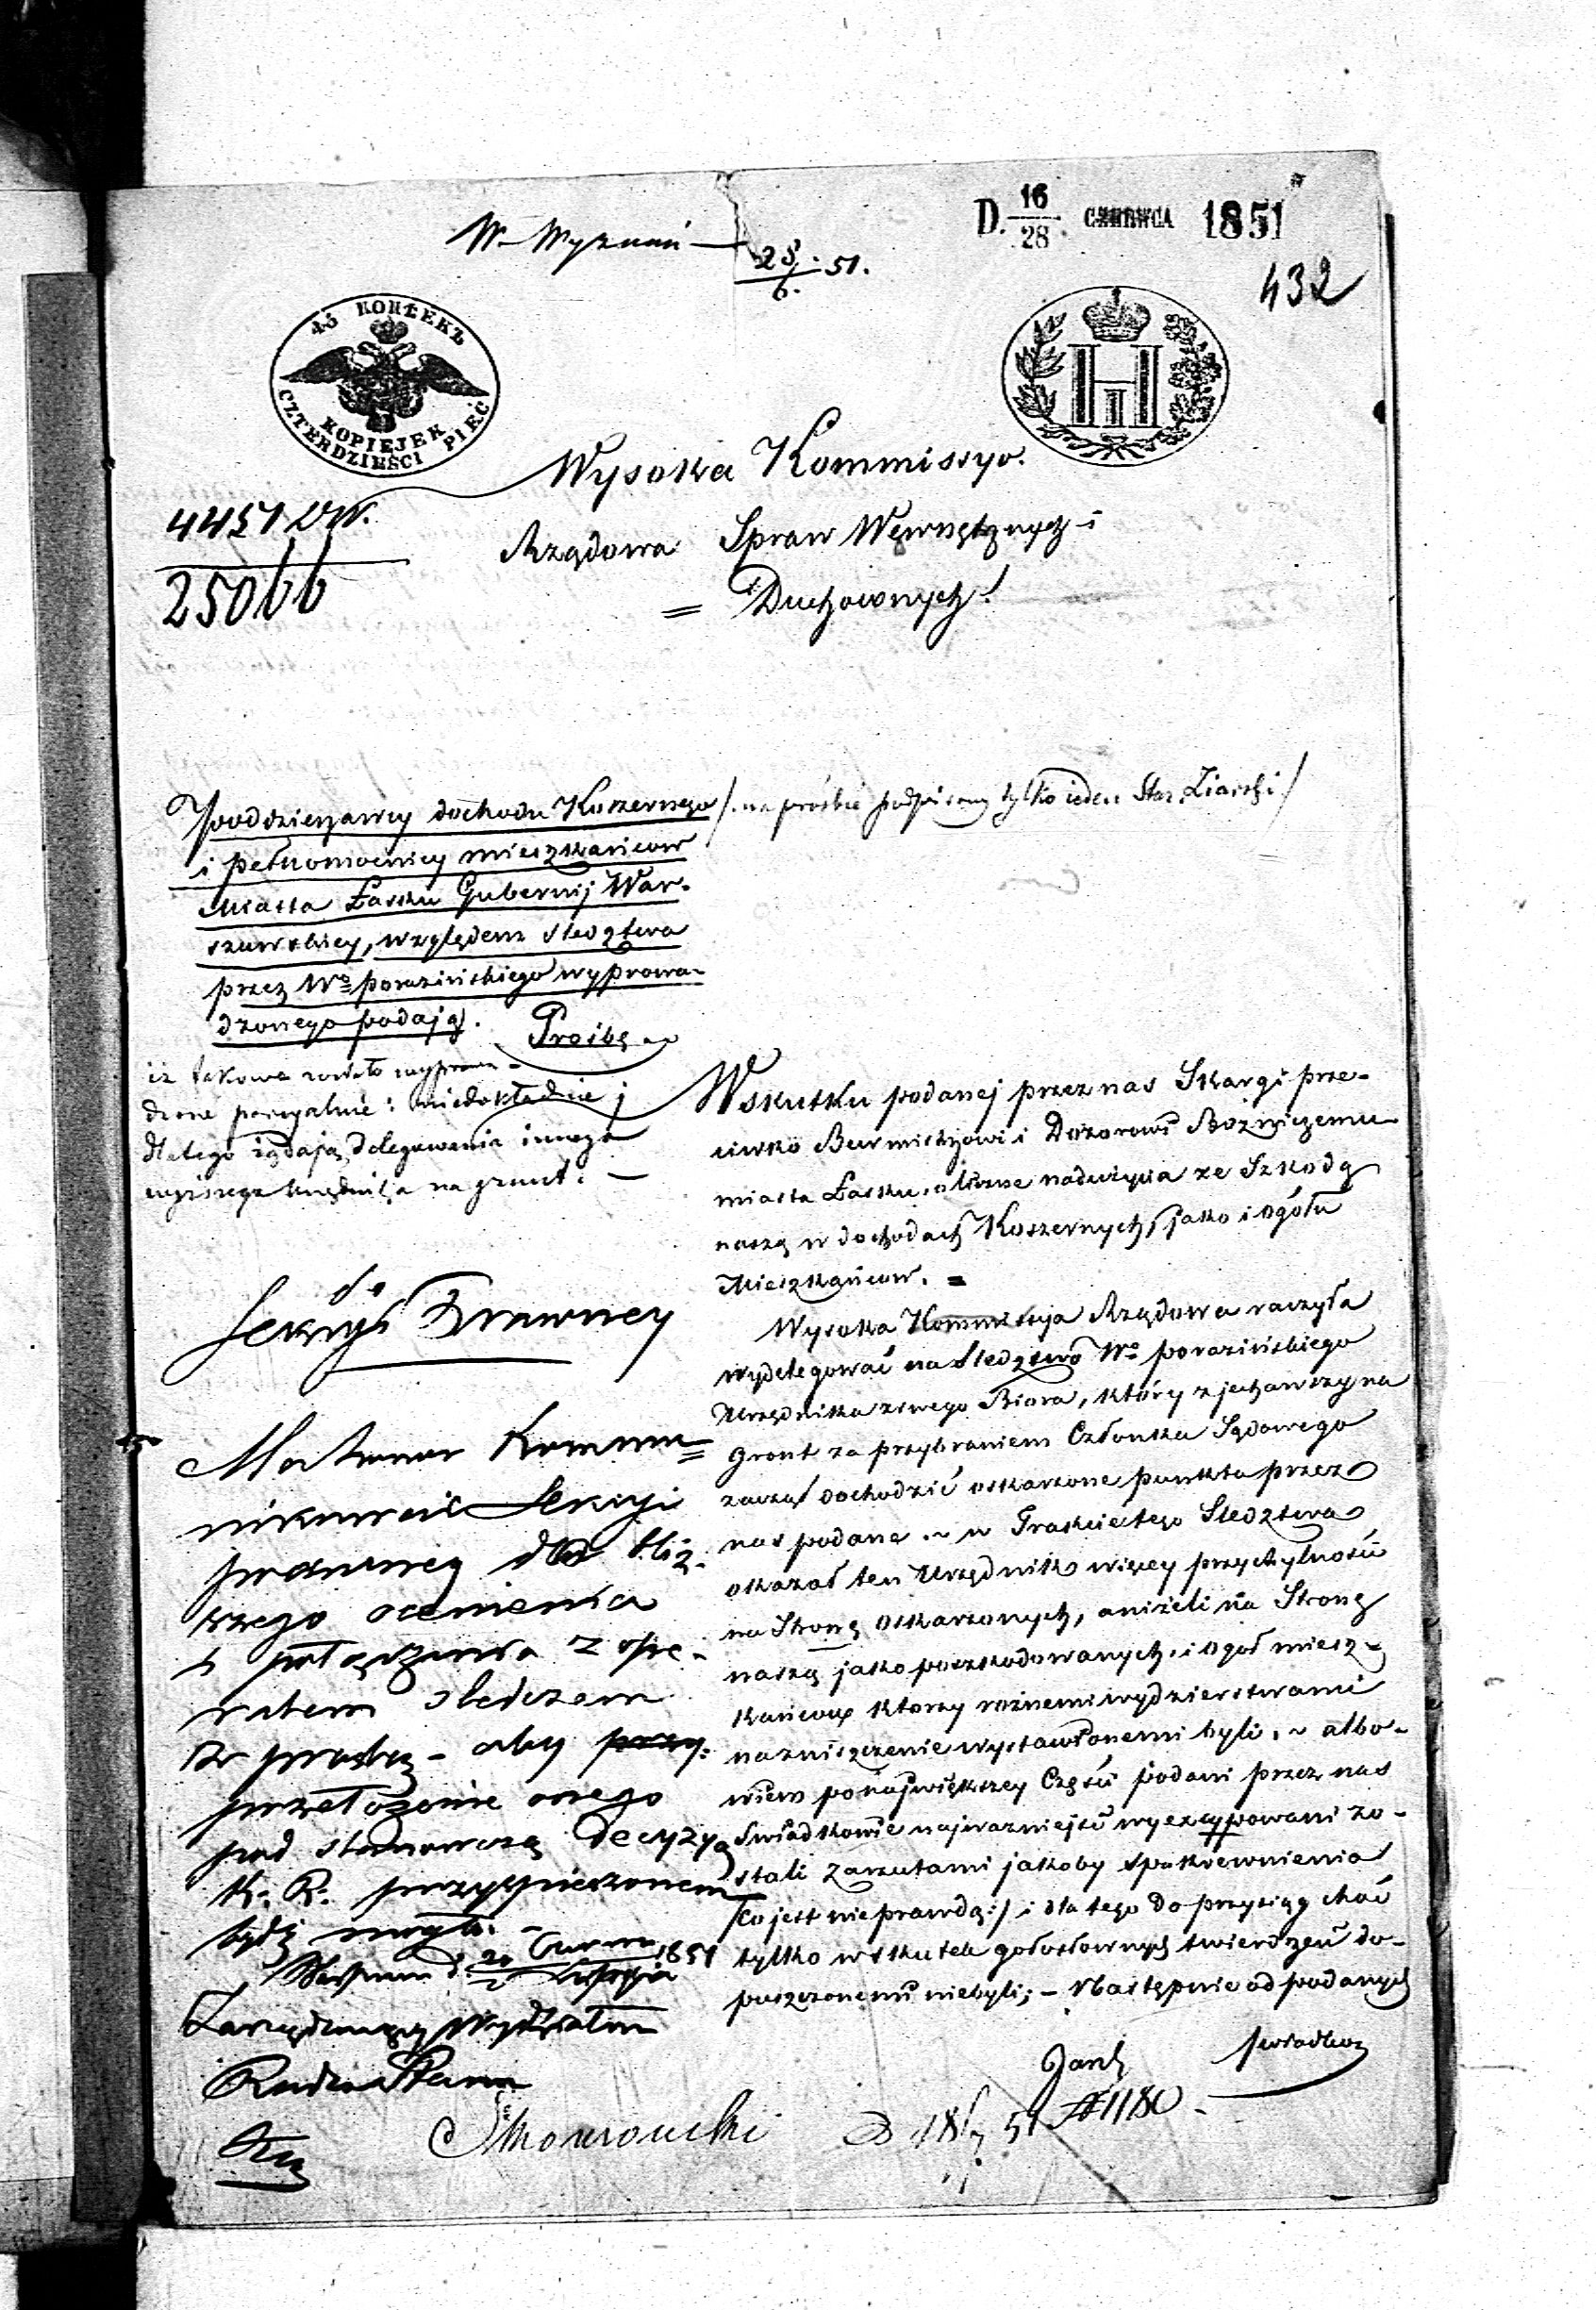 W. Wyznań
28/6. 51.
D. 16/28 CZERWCA 1851
432
45 КОПѢЕКЪ
KOPIEJEK
CZTERDZIEŚCI PIĘĆ
4451
25066
Wysoka Kommissyo.
Rządowa Spraw Wewnętrznych i
= Duchownych!
Poddzierżawcy dochodu Koszernego
/: na prośbie podpisany tylko ieden /
i pełnomocnicy mieszkańców
Miasta Łasku Gubernij War-
szawskiey, względem śledztwa
przez Wo porazińskiego wyprowa-
dzonego podają.
Prośbę
iż takowe zostało wyprowa-
dzone parcyalnie i niedokładnie j
dlatego żądają delegowania innego
wyższego urzędnika na grunt. —
do
Sekcyi Prawney
Ma honor Kommu=
nikować Sekcyi
prawney dla bliż-
szego ocenienia
i połączenia z ope-
ratem śledczem
z prośbą - aby przy:
przełożenie onego
pod stanowczą decyzyą
K. R. przyspieszonem
bydź mogło. -
1851
Zarządzający Wydziałem
Radca Stanu
W skutku podanej przez nas Skargi prze-
ciwko Burmistrzowi i Dozorowi Bóżniczemu
miasta Łasku, o liczne nadużycia ze Szkodą
naszą w dochodach Koszernych, jako i ogółu
Mieszkańców. =
Wysoka Kommissyja Rządowa raczyła
wydelegować na Śledztwo Wo porazińskiego
Urzędnika swego Biora, który zjechawszy na
gront za przybraniem Członka Sądowego
zaczął dochodzić oskarzone punkta przez
nas podane. ~ w Trakcie tego Śledztwa
okazał ten Urzędnik więcey przychylności
na Stronę Oskarzonych, aniżeli na Stronę
naszą jako poszkodowanych, i ogół miesz-
kańców ktorzy roznemi wydzierstwami
na zniszczenie wystawionemi byli. ~ albo-
wiem po największey Części podani przez nas
Świadkowie najwazniejsi wyexcypowani zo-
stali Zarzutami jakoby spokrewnienia
/:co jest nie prawdą:/ i dla tego do przysiąg choć
tylko w skutek gołosłownych twierdzeń do-
puszczonemi niebyli; - Następnie od podanych
świadków
№ 1180